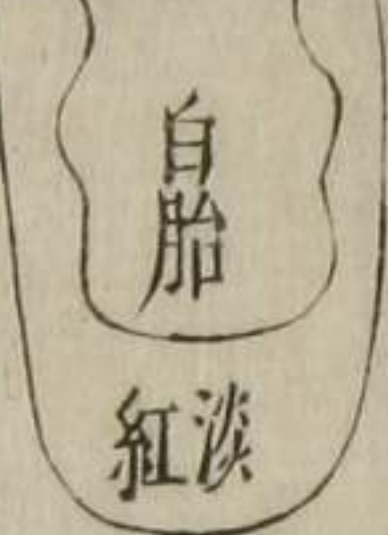 白胎
淡紅